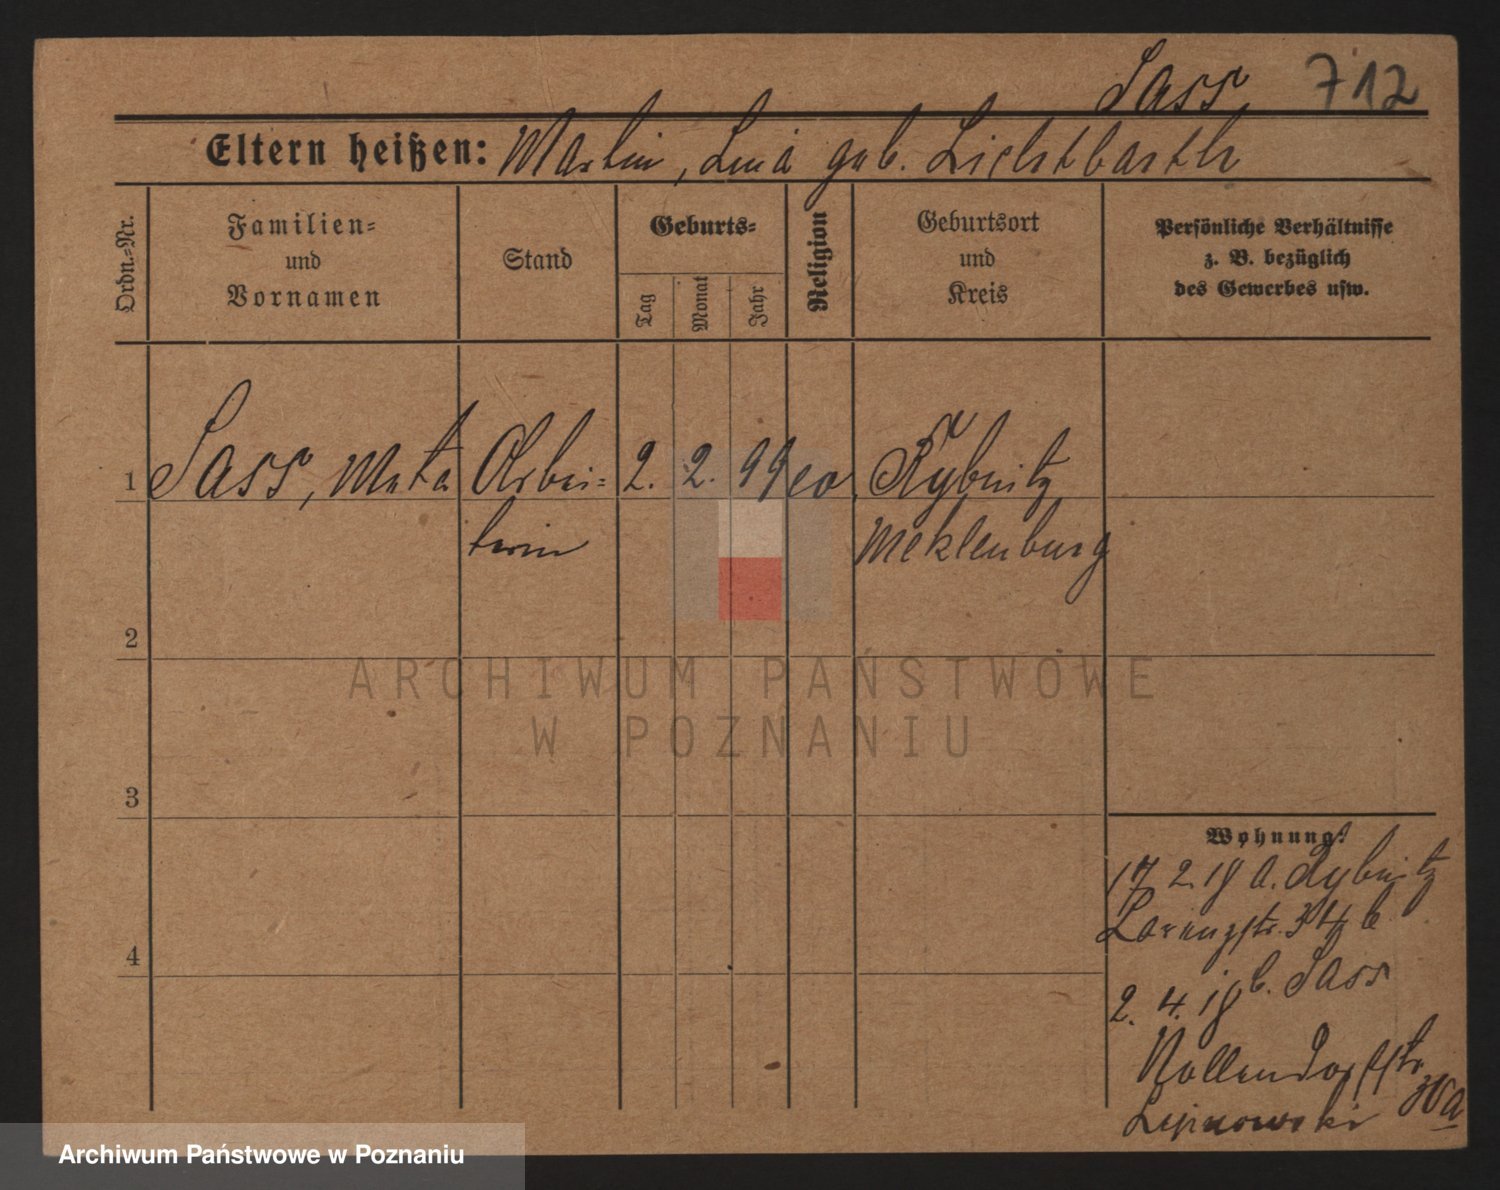 Sass 712
Eltern heißen: Martin, Lina geb. Lichtbarth
Ordn.=Nr.
Familien=
und
Vornamen
Stand
Geburts=
Tag
Monat
Jahr
Religion
Geburtsort
und
Kreis
Persönliche Verhältnisse
z. B. bezüglich
des Gewerbes usw.
1 Sass, Meta Arbei= 2. 2. 99 ev. Rybnitz
terin Meklenburg
2
3
4
Wohnung:
17 2. 18 a. Rybnitz
34 b
2. 4. 18 b. Sass
Nollendorfstr
ARCHIWUM PAŃSTWOWE
W POZNANIU
Archiwum Państwowe w Poznaniu